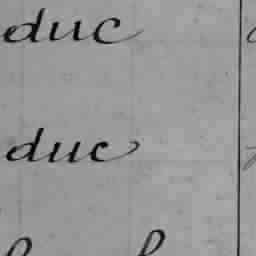 duc
duc